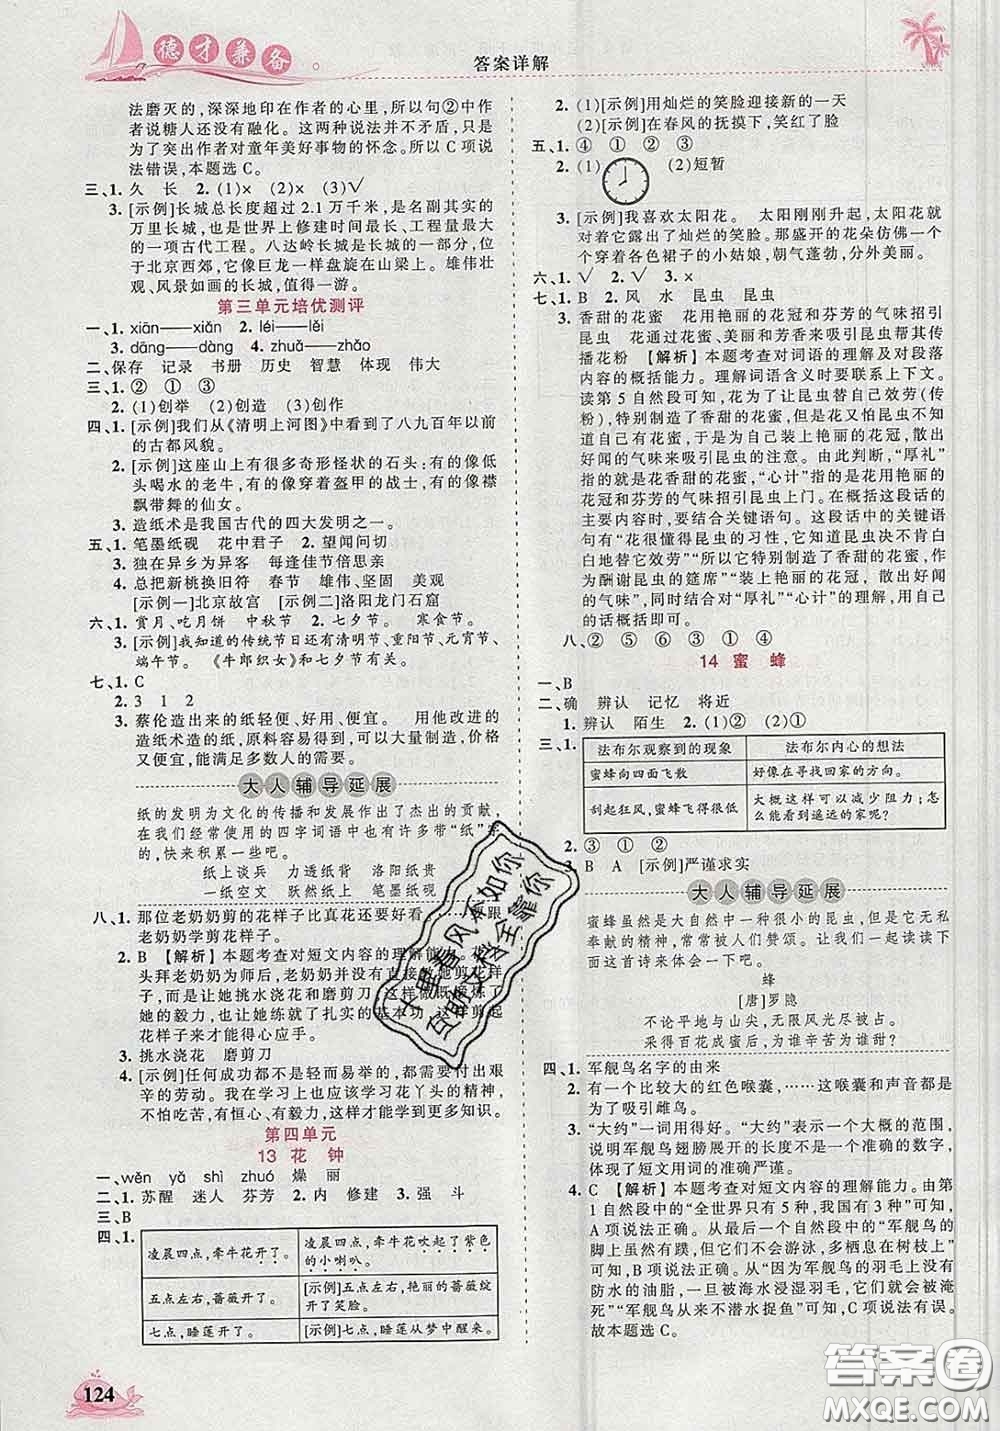 德才兼备
答案详解
法磨灭的,深深地印在作者的心里,所以句②中作
者说糖人还没有融化。这两种说法并不矛盾,只是
为了突出作者对童年美好事物的怀念。所以C项说
法错误,本题选C。
三、1. 久 长 2. (1)× (2)× (3)√
3. [示例]长城总长度超过2.1万千米,是名副其实的
万里长城,也是世界上修建时间最长、工程量最大
的一项古代工程。八达岭长城是长城的一段,位
于北京西郊,它像巨龙一样盘旋在山梁上。雄伟壮
观、风景如画的长城,值得一游。
第三单元培优测评
一、1. xiān——xiǎn 2. léi——lěi
3. dāng——dàng 4. zhuā——zhǎo
二、保存 记录 书册 历史 智慧 体现 伟大
三、1. ② ① ③
2. (1)创举 (2)创造 (3)创作
四、1. [示例]我们从《清明上河图》中看到了八九百年以前
的古都风貌。
2. [示例]这座山上有很多奇形怪状的石头:有的像低
头喝水的老牛,有的像穿着盔甲的战士,有的像襟
飘带舞的仙女。
3. 造纸术是我国古代的四大发明之一。
五、1. 笔墨纸砚 花中君子 2. 望闻问切
3. 独在异乡为异客 每逢佳节倍思亲
4. 总把新桃换旧符 春节 雄伟、坚固 美观
[示例一]北京故宫 [示例二]洛阳龙门石窟
六、1. 赏月、吃月饼 中秋节 2. 七夕节。 寒食节。
3. [示例]我知道的传统节日还有清明节、重阳节、元宵节、
端午节。 《牛郎织女》和七夕节有关。
七、1. C
2. 3 1 2
3. 蔡伦造出来的纸轻便、好用、便宜。 用他改进的
造纸术造的纸,原料容易得到,可以大量制造,价格又
便宜,能满足多数人的需要。
大人辅导延展
纸的发明为文化的传播和发展作出了杰出的贡献,
在我们经常使用的四字词语中也有许多带“纸”字
的,快来积累一些吧。
纸上谈兵 力透纸背 洛阳纸贵
一纸空文 跃然纸上 笔墨纸砚
八、1. 那位老奶奶剪的花样子比真花还要好看。
老奶奶学剪花样子。
2. B 【解析】本题考查对短文内容的理解能力。
头拜老奶奶为师后,老奶奶并没有直接教她剪花样
子,而是先让她挑水浇花和磨剪刀,这样做既锻炼了
她的毅力,也让她练了扎实的基本功,这样
花样子来才能得心应手。
3. 挑水浇花 磨剪刀
4. [示例]任何成功都不是轻而易举的,都需要付出艰
辛的劳动。我在学习上也应该学习花丫头的精神,
不怕吃苦,有恒心,有毅力,这样才能学到更多知识。
第四单元
13 花 钟
一、wěn yǎ shì zhuó 燥 丽
二、1. 苏醒 迷人 芬芳 2. 内 修建 3. 强 斗
三、B
四、1.
凌晨四点,牵牛花开了。 凌晨四点,牵牛花吹起了紫色的小喇叭。
五点左右,蔷薇开了。 [示例]五点左右,艳丽的蔷薇绽开了笑脸。
七点,睡莲开了。 [示例]七点,睡莲从梦中醒来。
124
2. (1)[示例]用灿烂的笑脸迎接新的一天
(2)[示例]在春风的抚摸下,笑红了脸
五、1. ④ ① ② ③
2. (1) (2)短暂
3. [示例]我喜欢太阳花。 太阳刚刚升起,太阳花就
对着它露出了灿烂的笑脸。那盛开的花朵仿佛一个
个穿着各色裙子的小姑娘,朝气蓬勃,分外美丽。
六、1. √ 2. √ 3. ×
七、1. B 2. 风 水 昆虫 昆虫
3. 香甜的花蜜 花用艳丽的花冠和芬芳的气味招引
昆虫 花通过花蜜、美丽和芳香来吸引昆虫为其传
播花粉 【解析】本题考查对词语的理解及对段落
内容的概括能力。理解词语含义时要联系上下文。
读第5自然段可知,花为了让昆虫替自己效劳(传
粉),特别制造了香甜的花蜜,但又怕不是所有昆虫
都有花蜜,于是花朵又装上艳丽的花冠,散出
好闻的气味来吸引昆虫的注意。由此判断,“厚礼”
指的是花最香甜的花蜜,“心计”指的是花用艳丽的
花冠和芬芳的气味招引昆虫上门。在概括这段话意
时,要结合关键语句。这段话中的关键语句
有“花很懂得昆虫的习性,它知道昆虫不肯白
白地替它效劳”“所以它特别制造了香甜的花蜜,作
为酬谢昆虫的筵席”“装上艳丽的花冠,散出好闻
的气味”,同时结合对“厚礼”“心计”的理解,用自己
的话概括即可。
八、② ⑤ ⑥ ③ ① ④
14 蜜 蜂
一、B
二、确 辨认 记忆 将近
1. 辨认 陌生 2. (1)② (2)①
三、1.
法布尔观察到的现象 法布尔内心的想法
蜜蜂向四面飞散 好像在寻找回家的方向。
刮起狂风,蜜蜂飞得很低 大概这样可以减少阻力;怎么能看到遥远的家呢?
2. ③ ① ②
3. B A [示例]严谨求实
大人辅导延展
蜜蜂虽然是大自然中一种很小的昆虫,但它无私
奉献的精神,常常被人们赞颂。让我们一起读读下
面这首诗来体会一下吧。
蜂
[唐]罗隐
不论平地与山尖,无限风光尽被占。
采得百花成蜜后,为谁辛苦为谁甜?
四、1. 军舰鸟名字的由来
2. 有的一个比较大的红色喉囊,……这喉囊和声音都是
为了吸引雌鸟。
3. “大约”一词用得好。“大约”表示一个大概的范围,
说明军舰鸟翅膀展开的长度不一定是准确的数字,
体现了短文用词的准确严谨。
4. C 【解析】本题考查对短文内容的理解能力。由第
1自然段中的“全世界只有5种,我国有3种”可知,
A项说法正确。从最后一个自然段中的“军舰鸟的
脚上虽然有蹼,但是它们不会游泳,多栖息在树枝上”可
知,B项说法正确。从“因为军舰鸟的羽毛上没有
防水的油脂,一旦被海水浸湿羽毛,它们就会被淹
死”“军舰鸟从来不潜水捕鱼”可知,C项说法有误。
故本题选C。
十里春风不如你
互助文科全靠你
答案圈
MXQE.COM